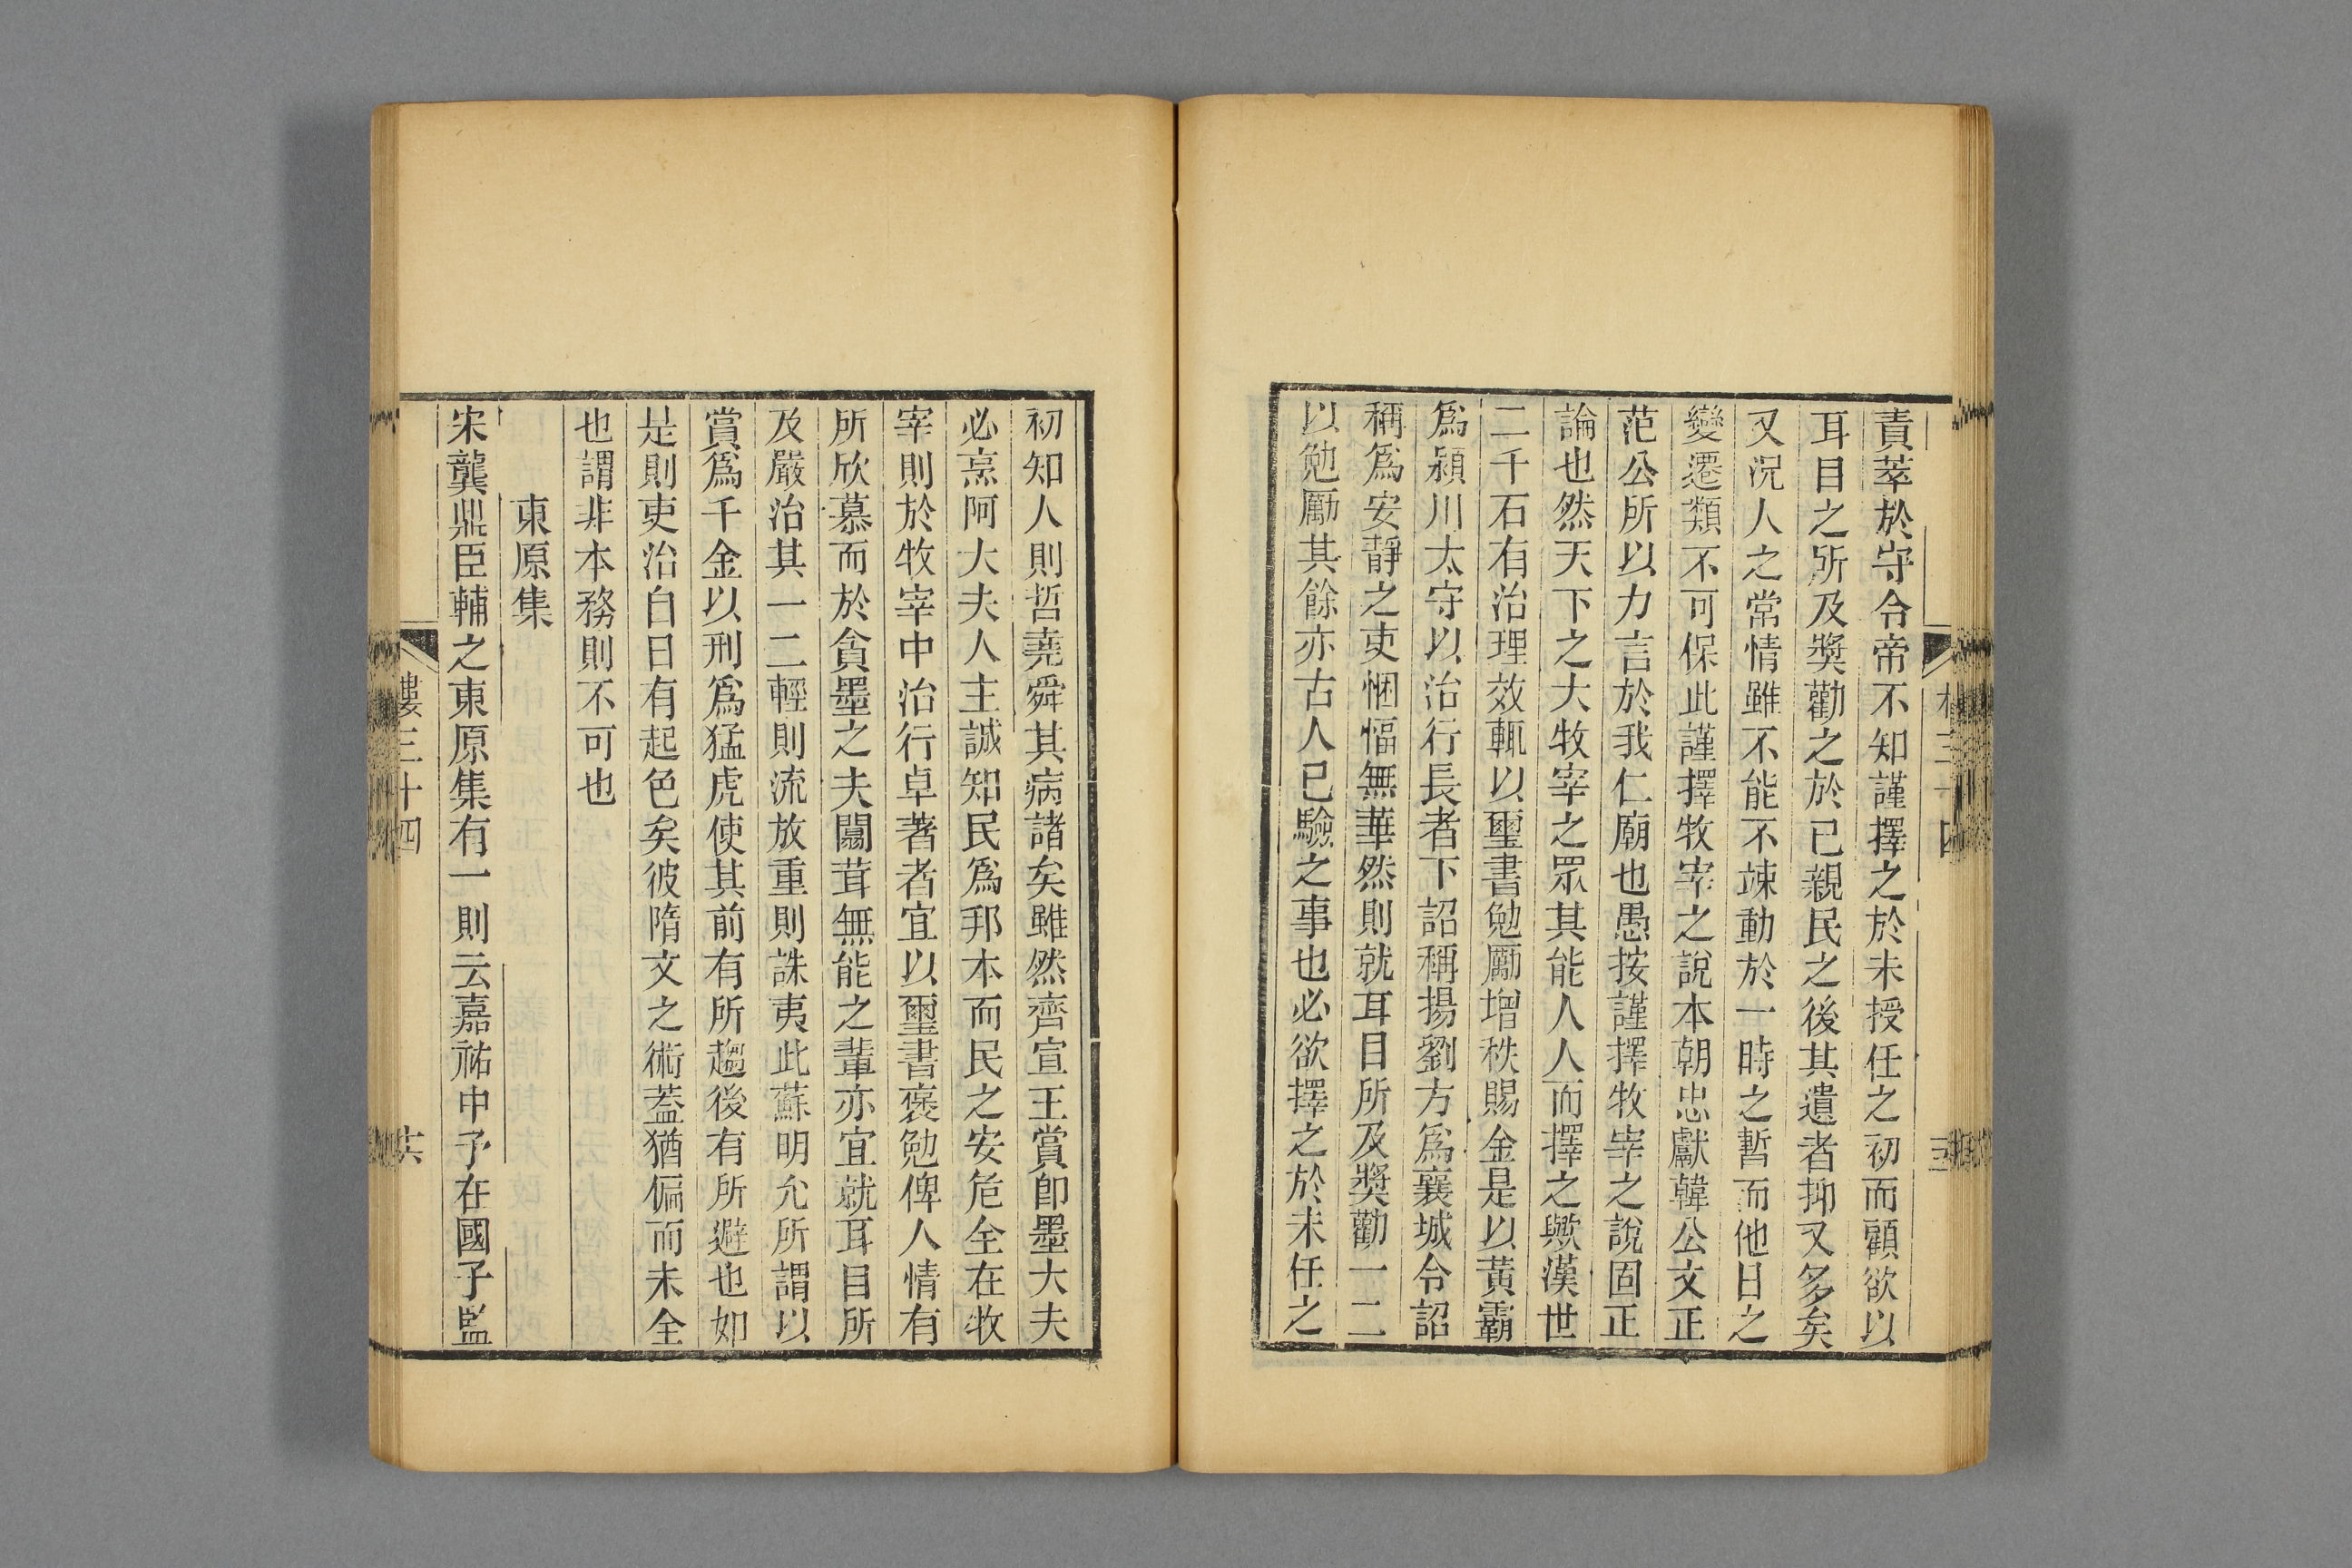 責萃於守令帝不知謹擇之於未授任之初而顧欲以
耳目之所及獎勸之於已親民之後其遺者抑又多矣
又况人之常情雖不能不竦動於一時之暫而他日之
變遷類不可保此謹擇牧宰之說本朝忠獻韓公文正
范公所以力言於我仁廟也愚按謹擇牧宰之說固正
論也然天下之大牧宰之眾其能人人而擇之歟漢世
二千石有治理效輒以璽書勉厲增秩賜金是以黃霸
爲潁川太守以治行長者下詔稱揚劉方爲襄城令詔
稱爲安靜之吏悃愊無華然則就耳目所及獎勸一二
以勉厲其餘亦古人已驗之事也必欲擇之於未任之
初知人則哲堯舜其病諸矣雖然齊宣王賞卽墨大夫
必烹阿大夫人主誠知民爲邦本而民之安危全在牧
宰則於牧宰中治行卓著者宜以璽書褒勉俾人情有
所欣慕而於貪墨之夫闒茸無能之輩亦宜就耳目所
及嚴治其一二輕則流放重則誅夷此蘇明允所謂以
賞爲千金以刑爲猛虎使其前有所趨後有所避也如
是則吏治白日有起色矣彼隋文之術蓋猶偏而未全
也謂非本務則不可也
東原集
宋龔鼎臣輔之東原集有一則云嘉祐中予在國子監
樓三十四
六